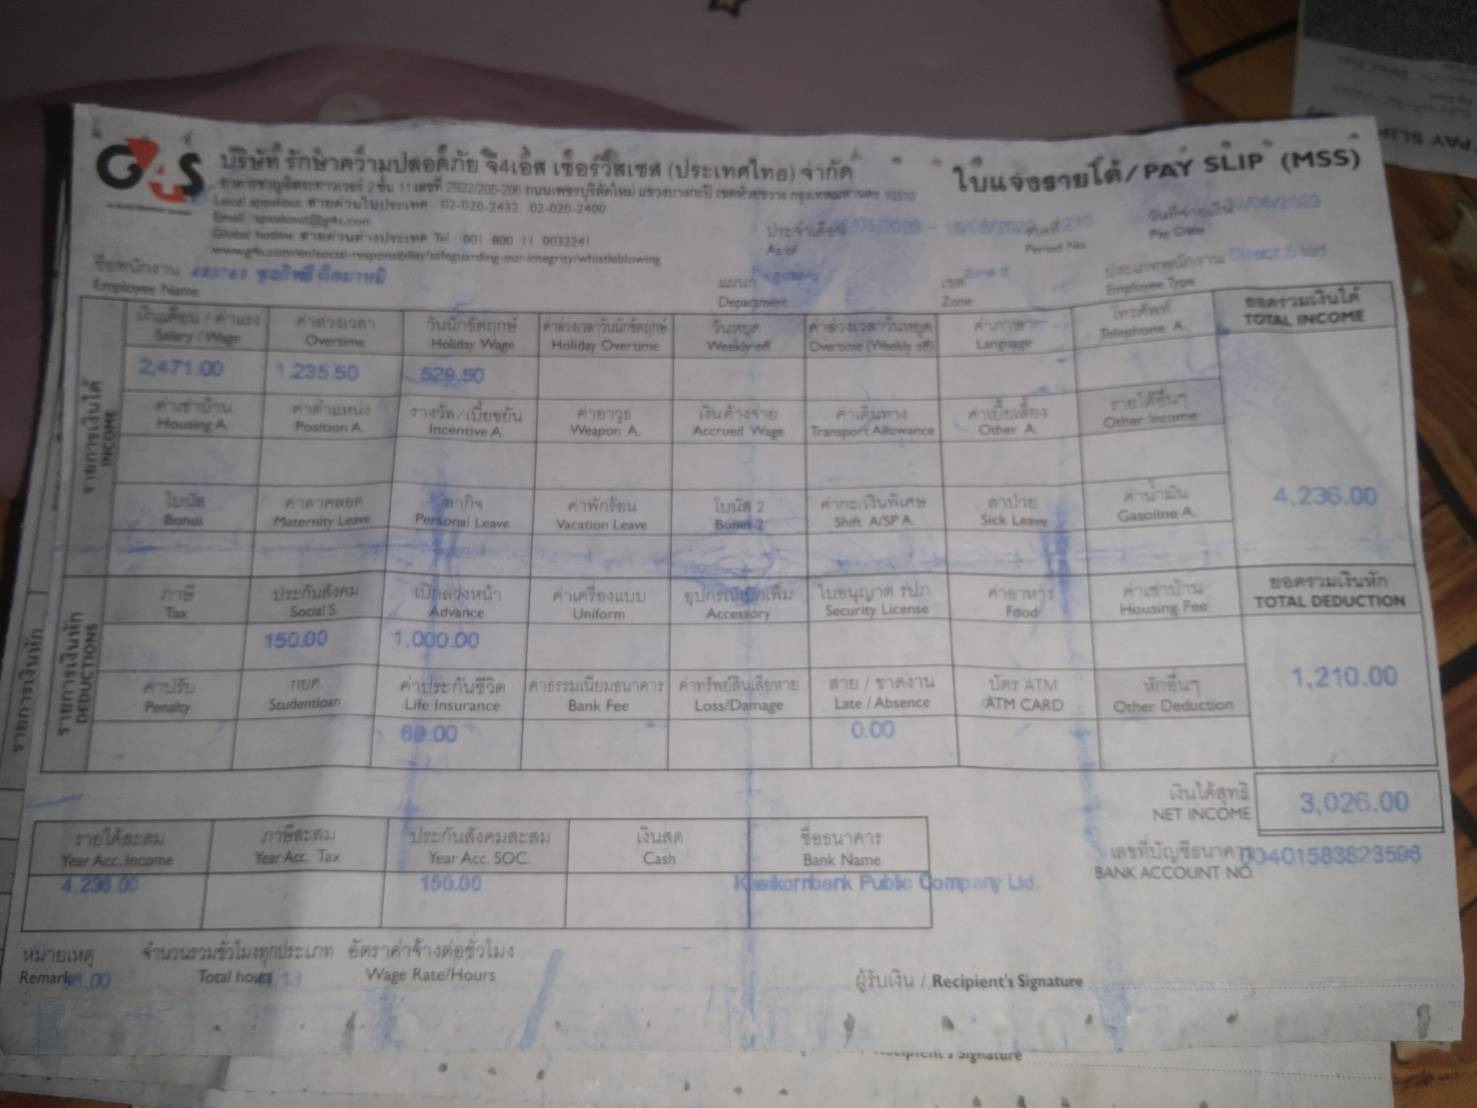 G4S
บริษัท รักษาความปลอดภัย จี4เอส เซอร์วิสเซส (ประเทศไทย) จำกัด
ใบแจ้งรายได้/PAY SLIP (MSS)
อาคารชาญอิสระทาวเวอร์ 2 ชั้น 11 เลขที่ 2922/205-206 ถนนเพชรบุรีตัดใหม่ แขวงบางกะปิ เขตห้วยขวาง กรุงเทพมหานคร 10310
Local speakout สายด่วนในประเทศ 02-020-2432, 02-020-2400
Email : speakout@g4s.com
Global hotline สายด่วนต่างประเทศ Tel : 001 800 11 0032241
www.g4s.com/en/social-responsibility/safeguarding-our-integrity/whistleblowing
ประจำเดือน
As of
งวดที่ 210
Period No.
วันที่จ่ายเงิน
Pay Date
ชื่อพนักงาน
Employee Name
แผนก
Department
เขต
Zone
ประเภทพนักงาน
Employee Type
รายการเงินได้ INCOME
เงินเดือน / ค่าแรง ค่าล่วงเวลา วันนักขัตฤกษ์ ค่าล่วงเวลาวันนักขัตฤกษ์ วันหยุด ค่าล่วงเวลาวันหยุด ค่าภาษา โทรศัพท์ ยอดรวมเงินได้
Salary / Wage Overtime Holiday Wage Holiday Overtime Weekly off Overtime (Weekly off) Language Telephone A. TOTAL INCOME
2,471.00 1,235.50 529.50
ค่าเช่าบ้าน ค่าตำแหน่ง รางวัล/เบี้ยขยัน ค่าอาวุธ เงินค้างจ่าย ค่าเดินทาง ค่าเบี้ยเลี้ยง รายได้อื่นๆ
Housing A. Position A. Incentive A. Weapon A. Accrued Wage Transport Allowance Other A. Other Income
โบนัส ค่าลาคลอด ลากิจ ค่าพักร้อน โบนัส 2 ค่ากะ/เงินพิเศษ ลาป่วย ค่าน้ำมัน
Bonus Maternity Leave Personal Leave Vacation Leave Bonus 2 Shift A/SP A. Sick Leave Gasoline A.
4,236.00
รายการเงินหัก DEDUCTIONS
ภาษี ประกันสังคม เบิกล่วงหน้า ค่าเครื่องแบบ อุปกรณ์เพิ่มเติม ใบอนุญาต รปภ. ค่าอาหาร ค่าเช่าบ้าน ยอดรวมเงินหัก
Tax Social S. Advance Uniform Accessory Security License Food Housing Fee TOTAL DEDUCTION
150.00 1,000.00
ค่าปรับ กยศ. ค่าประกันชีวิต ค่าธรรมเนียมธนาคาร ค่าทรัพย์สินเสียหาย สาย / ขาดงาน บัตร ATM หักอื่นๆ
Penalty Studentloan Life Insurance Bank Fee Loss/Damage Late / Absence ATM CARD Other Deduction
1,210.00
0.00
เงินได้สุทธิ
NET INCOME
3,026.00
รายได้สะสม ภาษีสะสม ประกันสังคมสะสม เงินสด ชื่อธนาคาร
Year Acc. Income Year Acc. Tax Year Acc. SOC. Cash Bank Name
4,236.00 150.00 Kasikornbank Public Company Ltd.
เลขที่บัญชีธนาคาร
BANK ACCOUNT NO. 00401583823596
หมายเหตุ จำนวนรวมชั่วโมงทุกประเภท อัตราค่าจ้างต่อชั่วโมง
Remark Total hours Wage Rate/Hours
ผู้รับเงิน / Recipient's Signature
Recipient's Signature
รายการเงินหัก
PAY SLIP